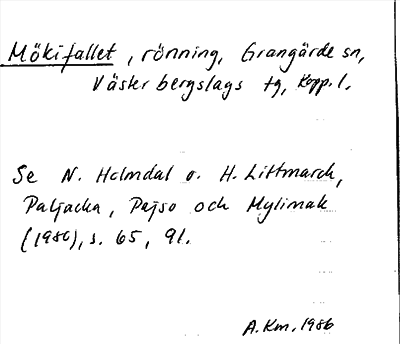 Mökifallet, rönning, Grangärde sn,
Väster bergslags tg, Kopp. l.
Se N. Holmdal o. H. Littmarck,
Paljacka, Pajso och Mylimak
(1986), s. 65, 91.
A.Km. 1986